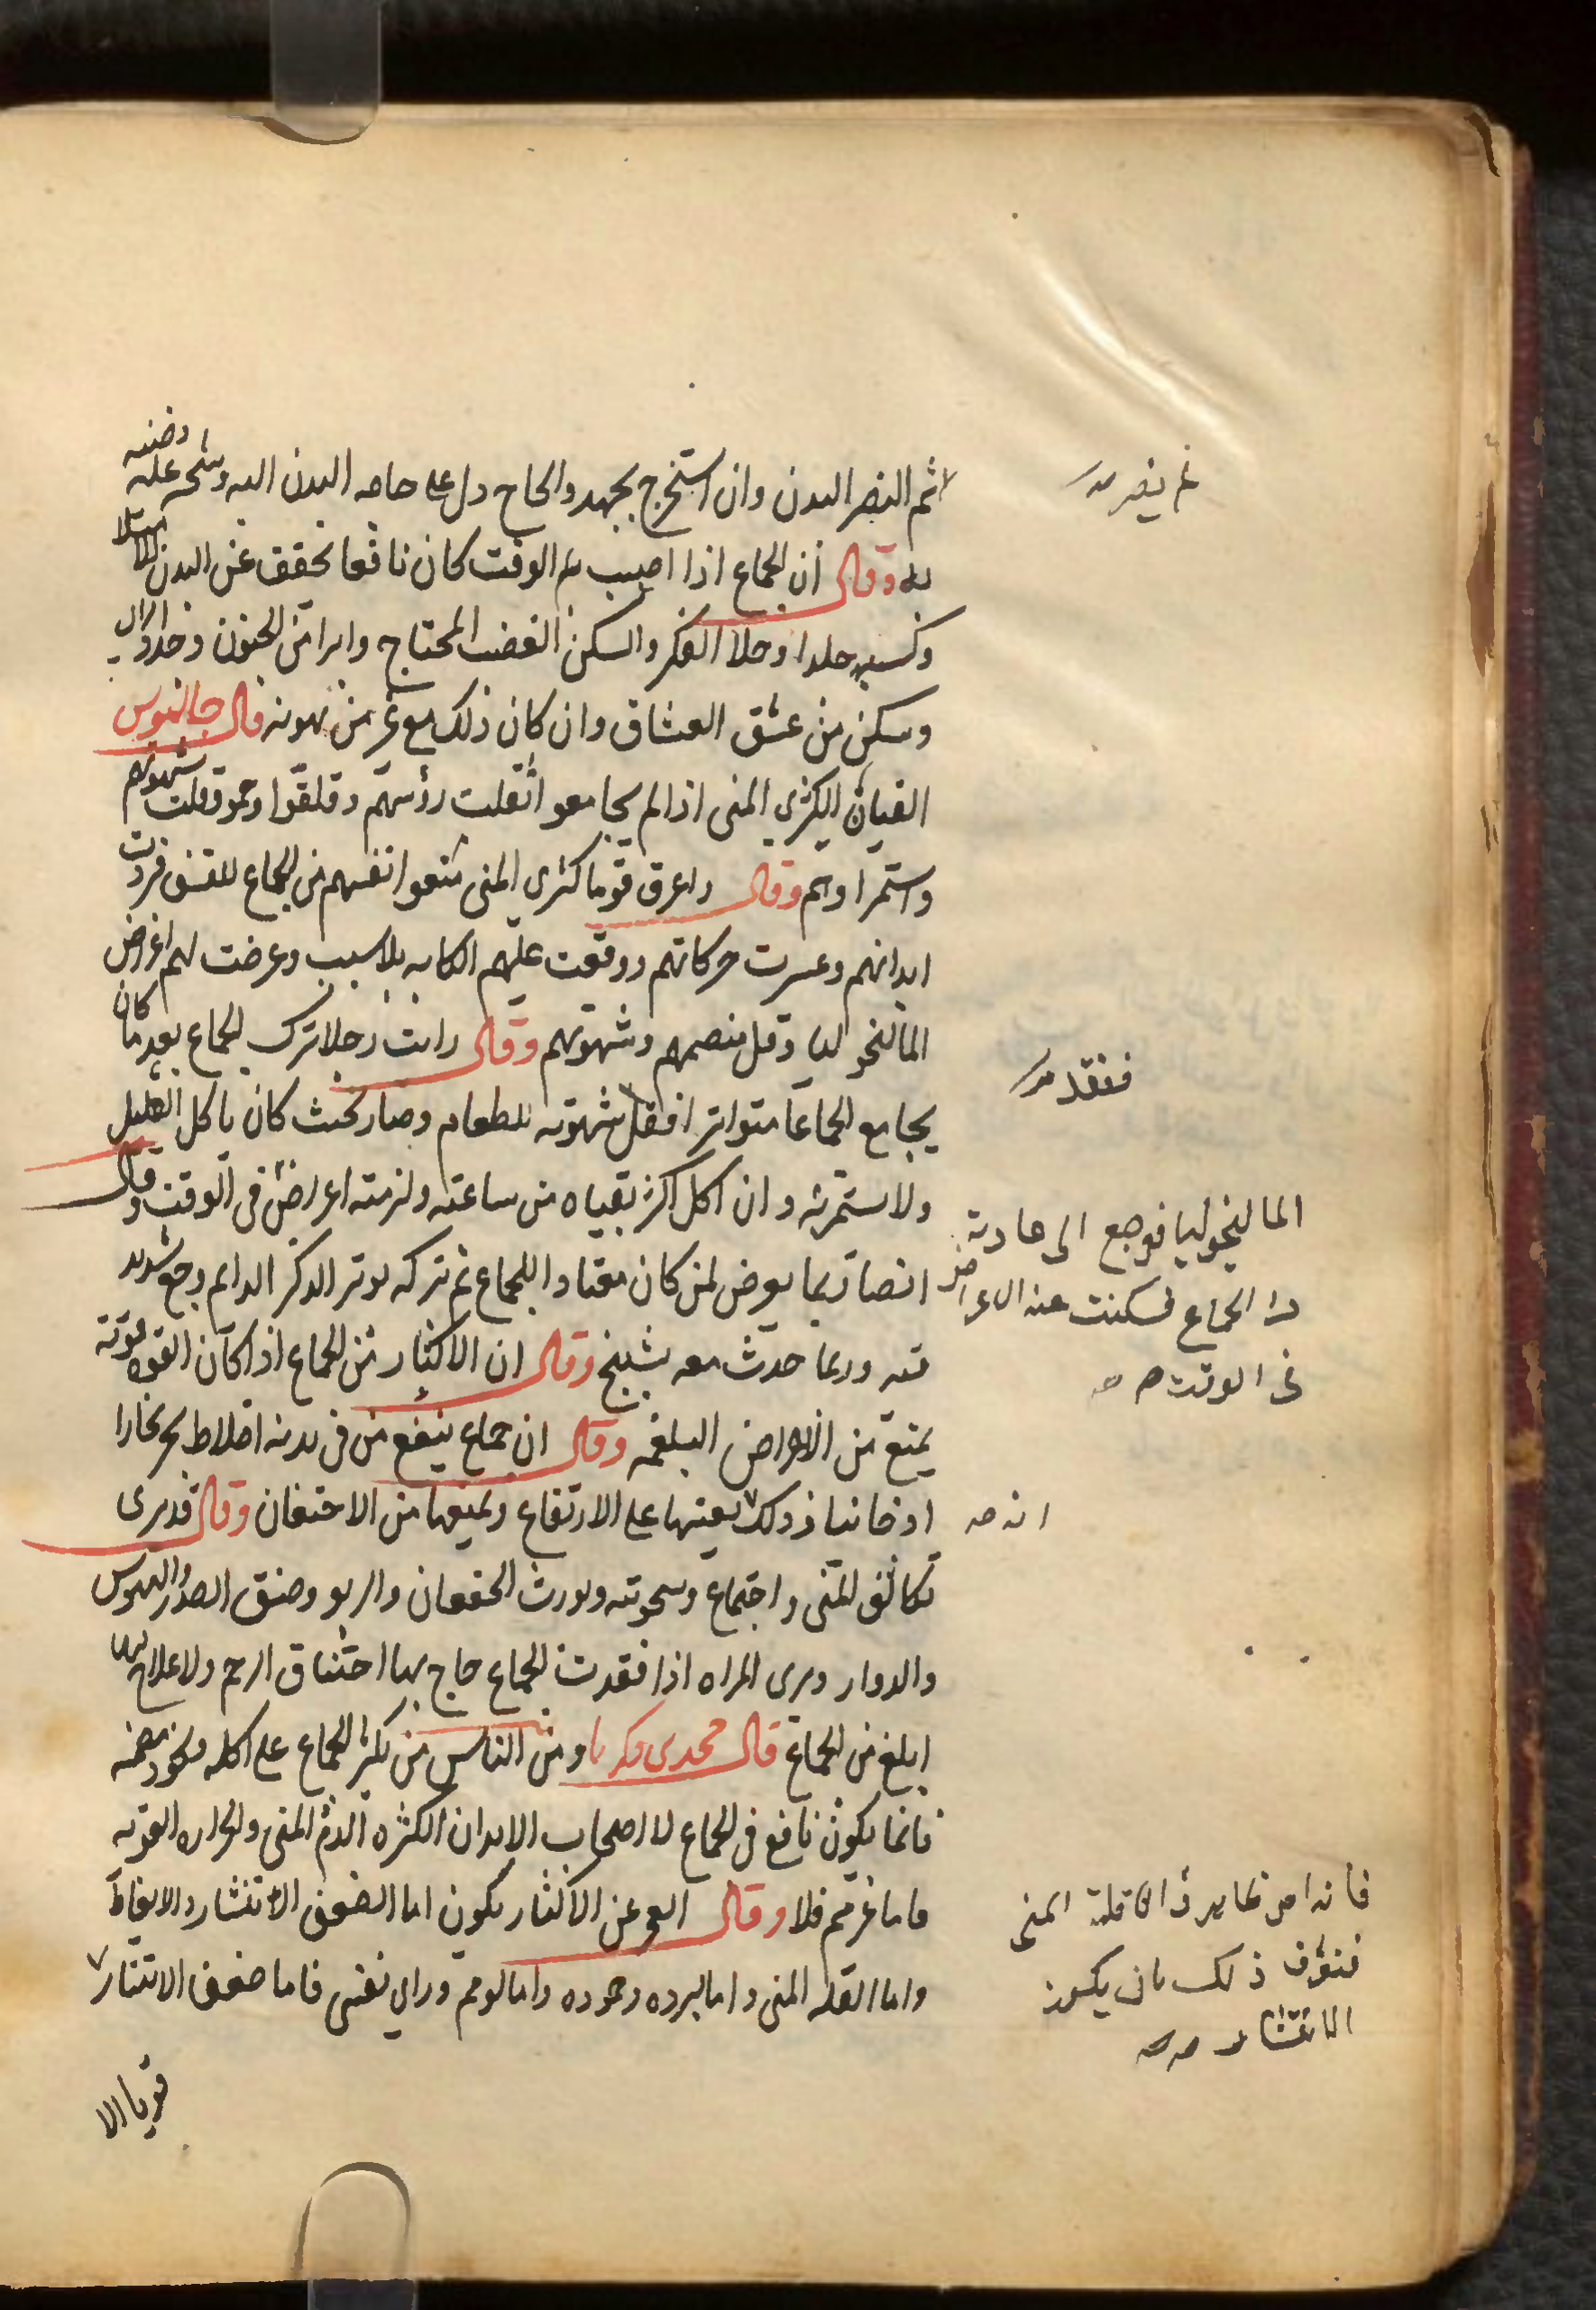 ثم النضر البدن وان استخرج بجهد والحاح دل على حاجه البدن اليه وشحه عليه وضنه
به وقال ان الجماع اذا اصيب به الوقت كان نافعا يخفف عن البدن الامتلا
وكسبه جلدا وجلا الفكر والسكن الغضب المحتاج وابرا من الجنون
وسكن من عشق العشاق وان كان ذلك مع غير من يهونه قال جالينوس
الفيان الكثرى المنى اذا لم يجامعو اثقلت رؤسهم وقلقوا وحموا وقلت شهوتهم
واستمراوهم وقال واعرق قوما كثرى المنى منعوا انفسهم من الجماع للقشف فبردت
ابدانهم وعسرت حركاتهم ووقعت عليهم الكابه بلا سبب وعرضت لهم اعراض
المالنخوليا وقل هضمهم وشهوتهم وقال رايت رجلا ترك الجماع بعد ما كان
يجامع الجماعا متواترا فقل شهوته للطعام وصار بحيث كان ياكل القليل
ولا استمرئه وان اكل اكثر تقياه من ساعته ولزمته اعراض فى الوقت وقال
ايضا ربما يعرض لمن كان معتادا للجماع ثم تركه توتر الذكر الدايم وجع شديد
فيه وربما حدث معه تشنج وقال ان الاكثار من الجماع اذا كان القوه قوته
يمنع من الامراض البلغميه وقال ان جماع ينفع من فى بدنه اخلاط بحر بخارا
او دخانيا وذلك يعينها على الارتفاع ويمنعها من الاحتقان وقال قد يرى
تكاثف المنى واجتماع وسخونته ويورث الخفقان والربو وضيق الصدر والهوس
والدوار ويرى المراه اذا فقدت الجماع هاج بها اختناق الرحم ولا علاج لها
ابلغ من الجماع قال محمد بن زكريا ومن الناس من يكثر الجماع على اكله ويجود هضمه
فانما يكون نافع فى الجماع لا اصحاب الابدان الكثره الدم المنى والحراره القويه
فاما غيرهم فلا وقال العجز عن الاكثار يكون اما الضعف الانتشار والايقاظ
واما القله المنى واما لبرده وجموده واما لوهم وراى نفسى فاما ضعف الانتشار
قويا الا
ثم يضر صح
ففقد صح
المالينخوليا فرجع الى عادته
فى الجماع فسكنت عنه الاعراض
فى الوقت صح
انه صح
فانه امر ظاهر واما قلة المنى
فنعرف ذلك بان يكون
الانتشار صح